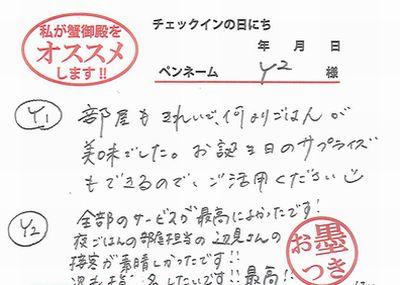 私が蟹御殿を
オススメ
します!!
チェックインの日にち
年 月 日
ペンネーム Y2 様
Y1 部屋もきれいで、何よりごはんが
美味でした。お誕生日のサプライズ
もできるので、ご活用ください
Y2 全部のサービスが最高によかったです!
夜ごはんの部屋担当の辺見さんの
接客が素晴しかったです!!
したいです!!最高!!
お墨
つき